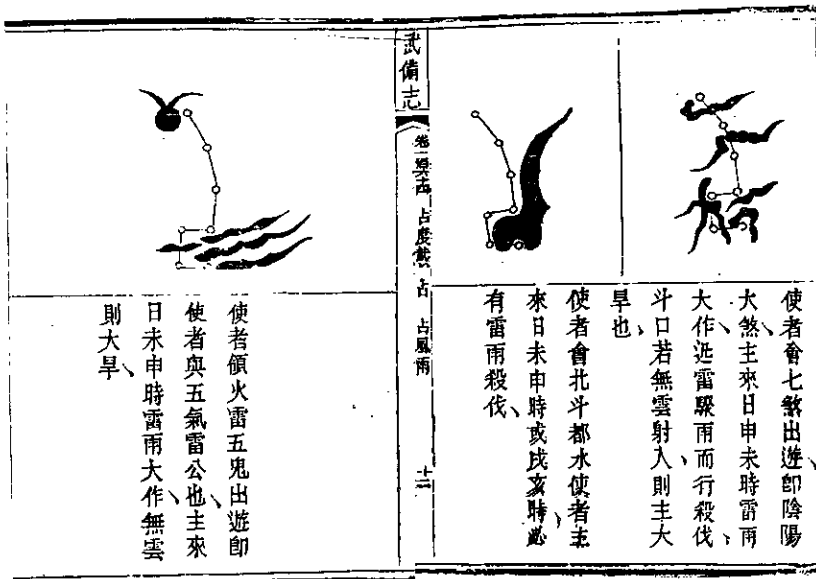 使者會七煞出遊即陰陽
大煞主來日申未時雷雨
大作迅雷驟雨而行殺伐
斗口若無雲射入則主大
旱也
使者會北斗都水使者主
來日未申時或戌亥時必
有雷雨殺伐
武備志
占度載 占 占風雨
十二
使者領火雷五鬼出遊即
使者與五氣雷公也主來
日未申時雷雨大作無雲
則大旱